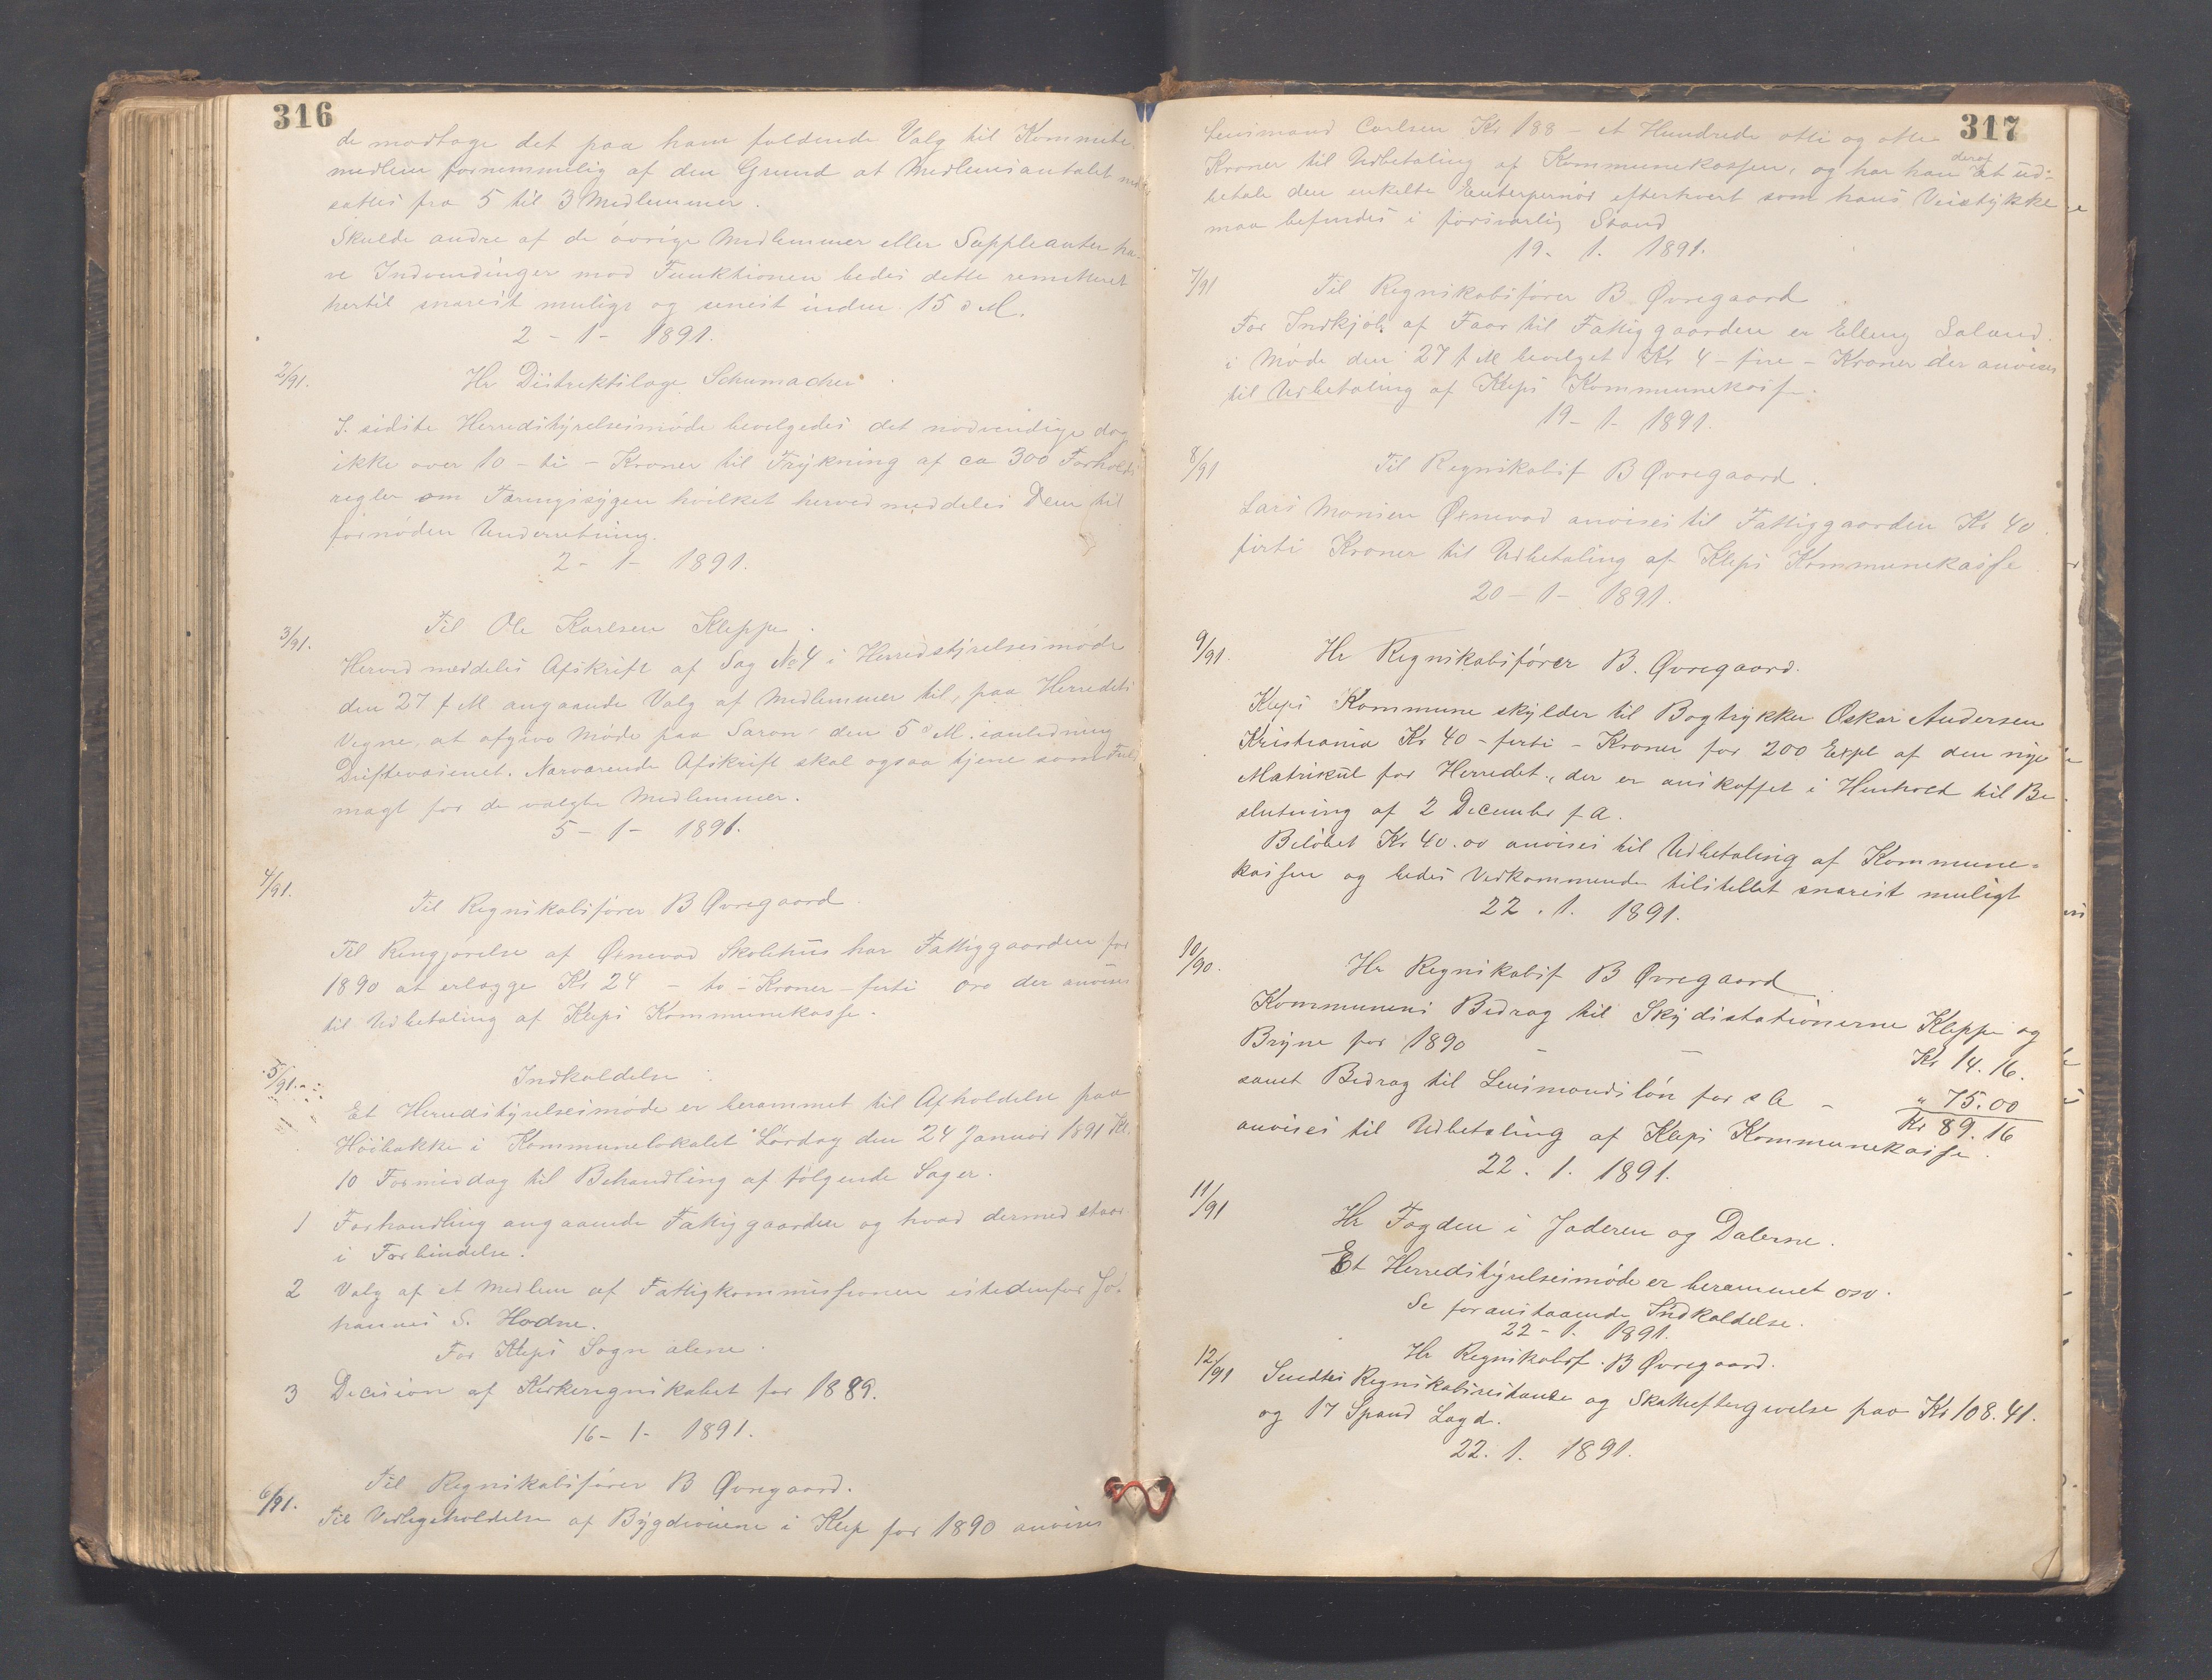 316
de modtage det paa ham faldende Valg til Kommite
medlem fornemmelig af den Grund at Medlemsantalet ned
sattes fra 5 til 3 Medlemmer.
Skulde andre af de øvrige Medlemmer eller Suppleanter ha-
ve Indvendinger mod Funktionen bedes dette remitteret
hertil snarest muligt og senest inden 15 d M.
2 - 1 - 1891.
2/91. Hr Distriktslæge Schumacher
I sidste Herredstyrelsesmøde bevilgedes det nødvendige dog
ikke over 10 - ti - Kroner til Trykning af ca 300 Forholds
regler om Tæringssygen hvilket herved meddeles Dem til
fornøden Underretning.
2 - 1 - 1891.
3/91. Til Ole Karlsen Kleppe.
Herved meddeles Afskrift af Sag No 4 i Herredstyrelsesmøde
den 27 f M angaaende Valg af Medlemmer til, paa Herredets
Vegne, at afgive Møde paa Saron den 5 d M. ianledning
Driftevæsenet. Nærværende Afskrift skal ogsaa tjene som Fuld
magt for de valgte Medlemmer.
5 - 1 - 1891.
4/91.
Til Regnskabsfører B Øvregaard.
Til Rengjørelse af Orsnevad Skolehus har Fattiggaarden for
1890 at erlægge Kr 24 - to - Kroner - firti Øre der anvises
til Udbetaling af Kleps Kommunekasse.
5/91. Indkaldelse.
Et Herredstyrelsesmøde er berammet til Afholdelse paa
Høibakke i Kommunelokalet Lørdag den 24 Januar 1891 Kl.
10 Formiddag til Behandling af følgende Sager.
1 Forhandling angaaende Fattiggaarden og hvad dermed staar
i Forbindelse.
2 Valg af et Medlem af Fattigkommissionen istedenfor Jo-
hannes S. Hodne.
For Kleps Sogn alene.
3 Decision af Kirkeregnskabet for 1889.
16 - 1 - 1891.
6/91. Til Regnskabsfører B Øvregaard.
Til Vedligeholdelse af Bygdeveiene i Klep for 1890 anvises
317
Lensmand Carlsen Kr 188 - et Hundrede otti og otte
Kroner til Udbetaling af Kommunekassen, og har han deraf at ud-
betale den enkelte Enterpernør efterhvert som hans Veistykke
maa befindes i forsvarlig Stand
19. 1. 1891.
7/91 Til Regnskabsfører B Øvregaard
For Indkjøb af Faar til Fattiggaarden er Elling Saland
i Møde den 27 f M bevilget Kr 4 - fire - Kroner der anvises
til Udbetaling af Kleps Kommunekasse.
19 - 1 - 1891.
8/91 Til Regnskabsf B Øvregaard.
Lars Monsen Orsnevad anvises til Fattiggaarden Kr 40
firti Kroner til Udbetaling af Kleps Kommunekasse
20 - 1 - 1891.
9/91. Hr Regnskabsfører B. Øvregaard.
Kleps Kommune skylder til Bogtrykker Oskar Andersen
Kristiania Kr 40 - firti - Kroner for 200 Expl af den nye
Matrikul for Herredet, der er anskaffet i Henhold til Be-
slutning af 2 December f A.
Beløbet Kr 40.00 anvises til Udbetaling af Kommune-
kassen og bedes Vedkommende tilstillet snarest muligt
22. 1. 1891.
10/90. Hr Regnskabsf B Øvregaard
Kommunens Bidrag til Skydsstationerne Kleppe og
Bryne for 1890 - - Kr 14.16.
samt Bidrag til Lensmandsløn for s A - " 75.00
Kr 89.16
anvises til Udbetaling af Kleps Kommunekasse.
22. 1. 1891.
11/91 Hr Fogden i Jæderen og Dalerne.
Et Herredstyrelsesmøde er berammet osv.
Se foranstaaende Indkaldelse.
22 - 1. 1891.
12/91 Hr Regnskabsf. B Øvregaard.
Sendtes Regnskabsrestance og Skatteeftergivelse paa Kr 108.41.
og 17 Spand Lagd.
22. 1. 1891.